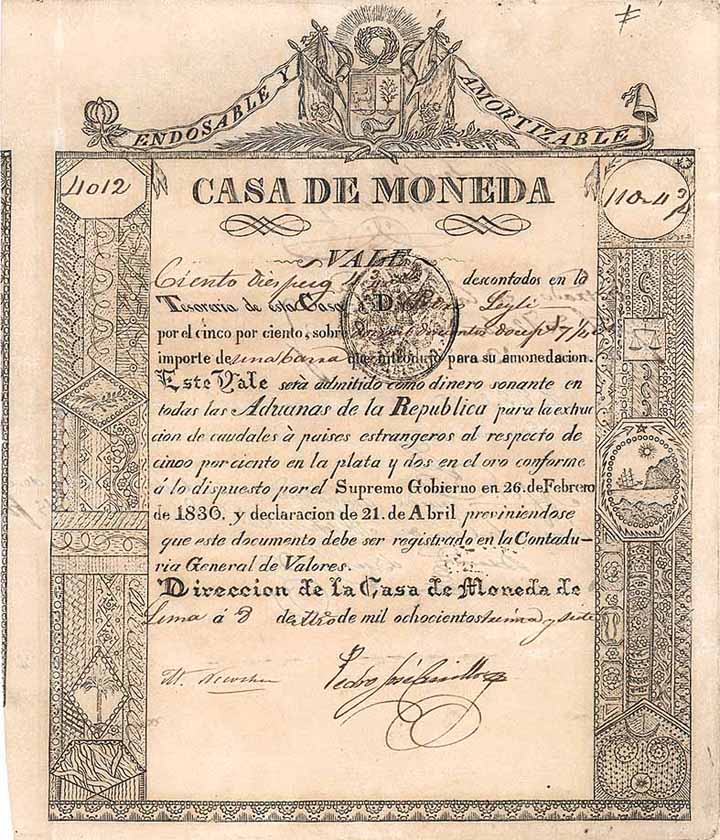 ENDOSABLE Y AMORTIZABLE
4012
CASA DE MONEDA
110-4
VALE
Ciento diez descontados en la
Tesoraria de esta Casa D.
por el cinco por ciento, sobre
importe de una barra que introdujo para su amonedacion.
Este Vale será admitido como dinero sonante en
todas las Aduanas de la Republica para la extrac
cion de caudales à paises estrangeros al respecto de
cinco por ciento en la plata y dos en el oro conforme
á lo dispuesto por el Supremo Gobierno en 26. de Febrero
de 1836. y declaracion de 21. de Abril previniendose
que este documento debe ser registrado en la Contadu-
ria General de Valores.
Direccion de la Casa de Moneda de
Lima á 3 de de mil ochocientos treinta y siete
Pedro José